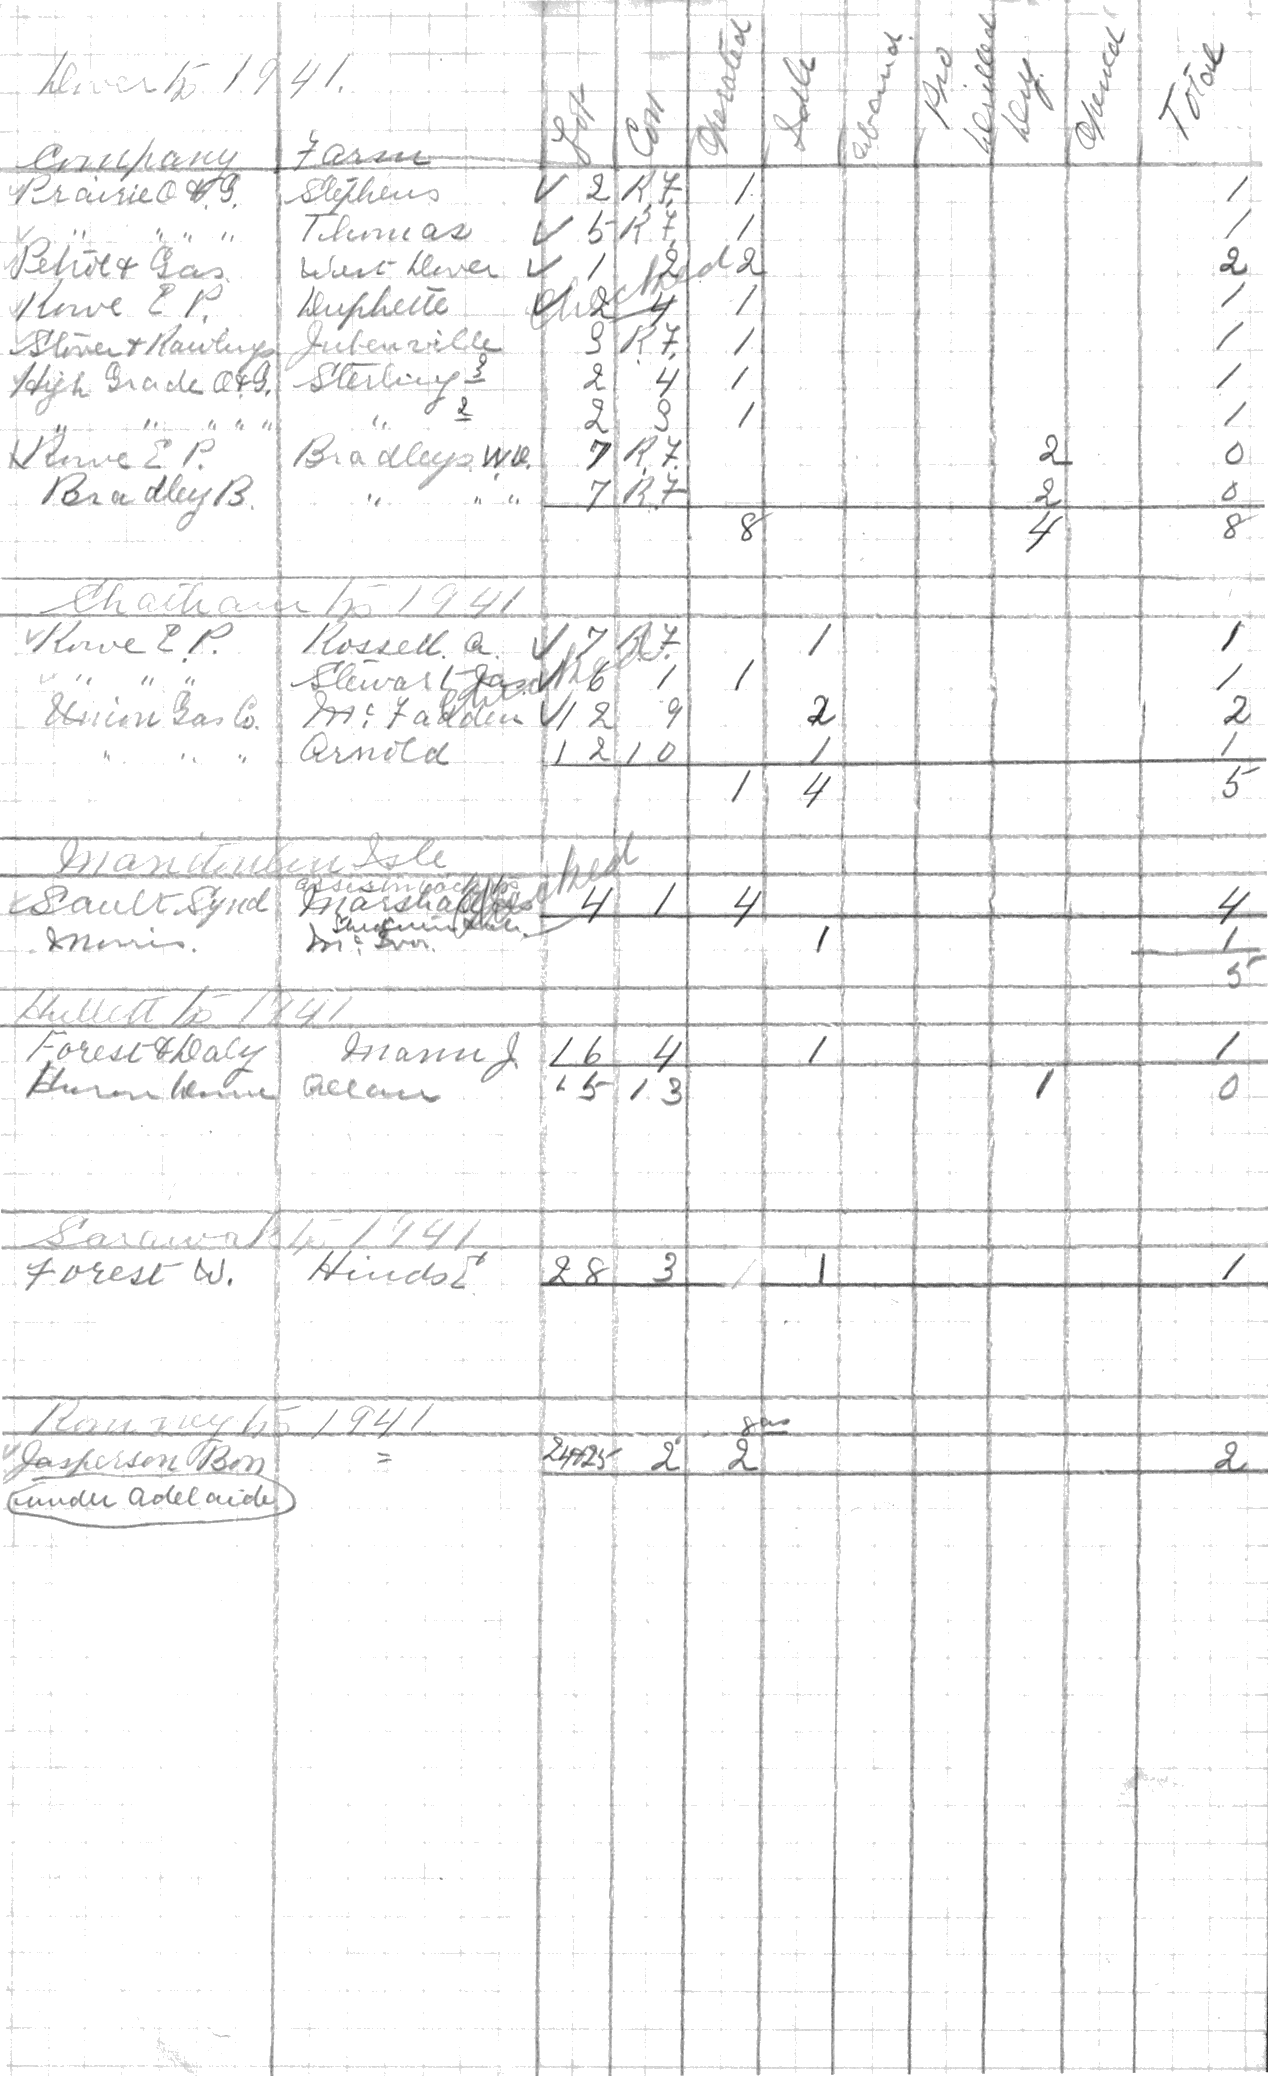 Dover tp 1941.
Company Farm Lot Con Operated Idle Aband. Pro Drilled Dry Opened Total
Prairie O & G. Stephens ✓ 2 R.7. 1 1
" " " " Thomas ✓ 5 R.7. 1 1
Petrol & Gas West Dover ✓ 1 2 2 2
checked
Rowe E P. Duphette ✓ 2 4 1 1
Stover & Rawlings Jubenville 3 R.7. 1 1
High Grade O&G. Sterling 3 2 4 1 1
" " " " " " 2 2 1 1
Rowe E P. Bradleys W.D. 7 R.7. 2 0
Bradley B. " " " 7 R.7 2 0
8 4 8
Chatham tp 1941
Rowe E.P. Rossell. A. ✓ 7 R.7. 1 1
" " " Stewart Jas. ✓ 6 1 1 1
Union Gas Co. Mc.Fadden ✓ 12 9 2 2
" " " Arnold 12 10 1 1
1 4 5
Manitoulin Isle
checked
Sault Synd Marshall 4 1 4 4
Morris. Mc. Ivor. 1 1
5
Hullett tp 1941
Forest & Daly Mann J. 16 4 1 1
Huron Allan 15 13 1 0
Sarawak tp 1941
Forest W. Hinds E 28 3 1 1 1
Romney tp 1941
gas
Jasperson Bon = 24+25 2 2 2
under Adelaide